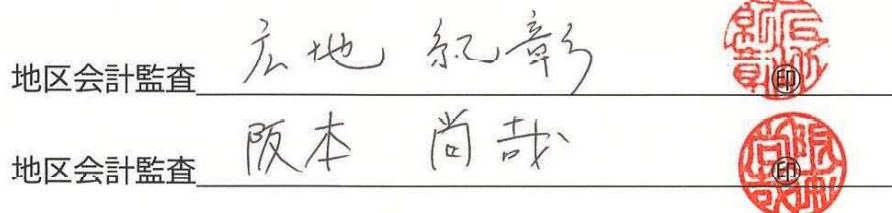 地区会計監査 広地 紀彰 ㊞
地区会計監査 阪本 尚哉 ㊞